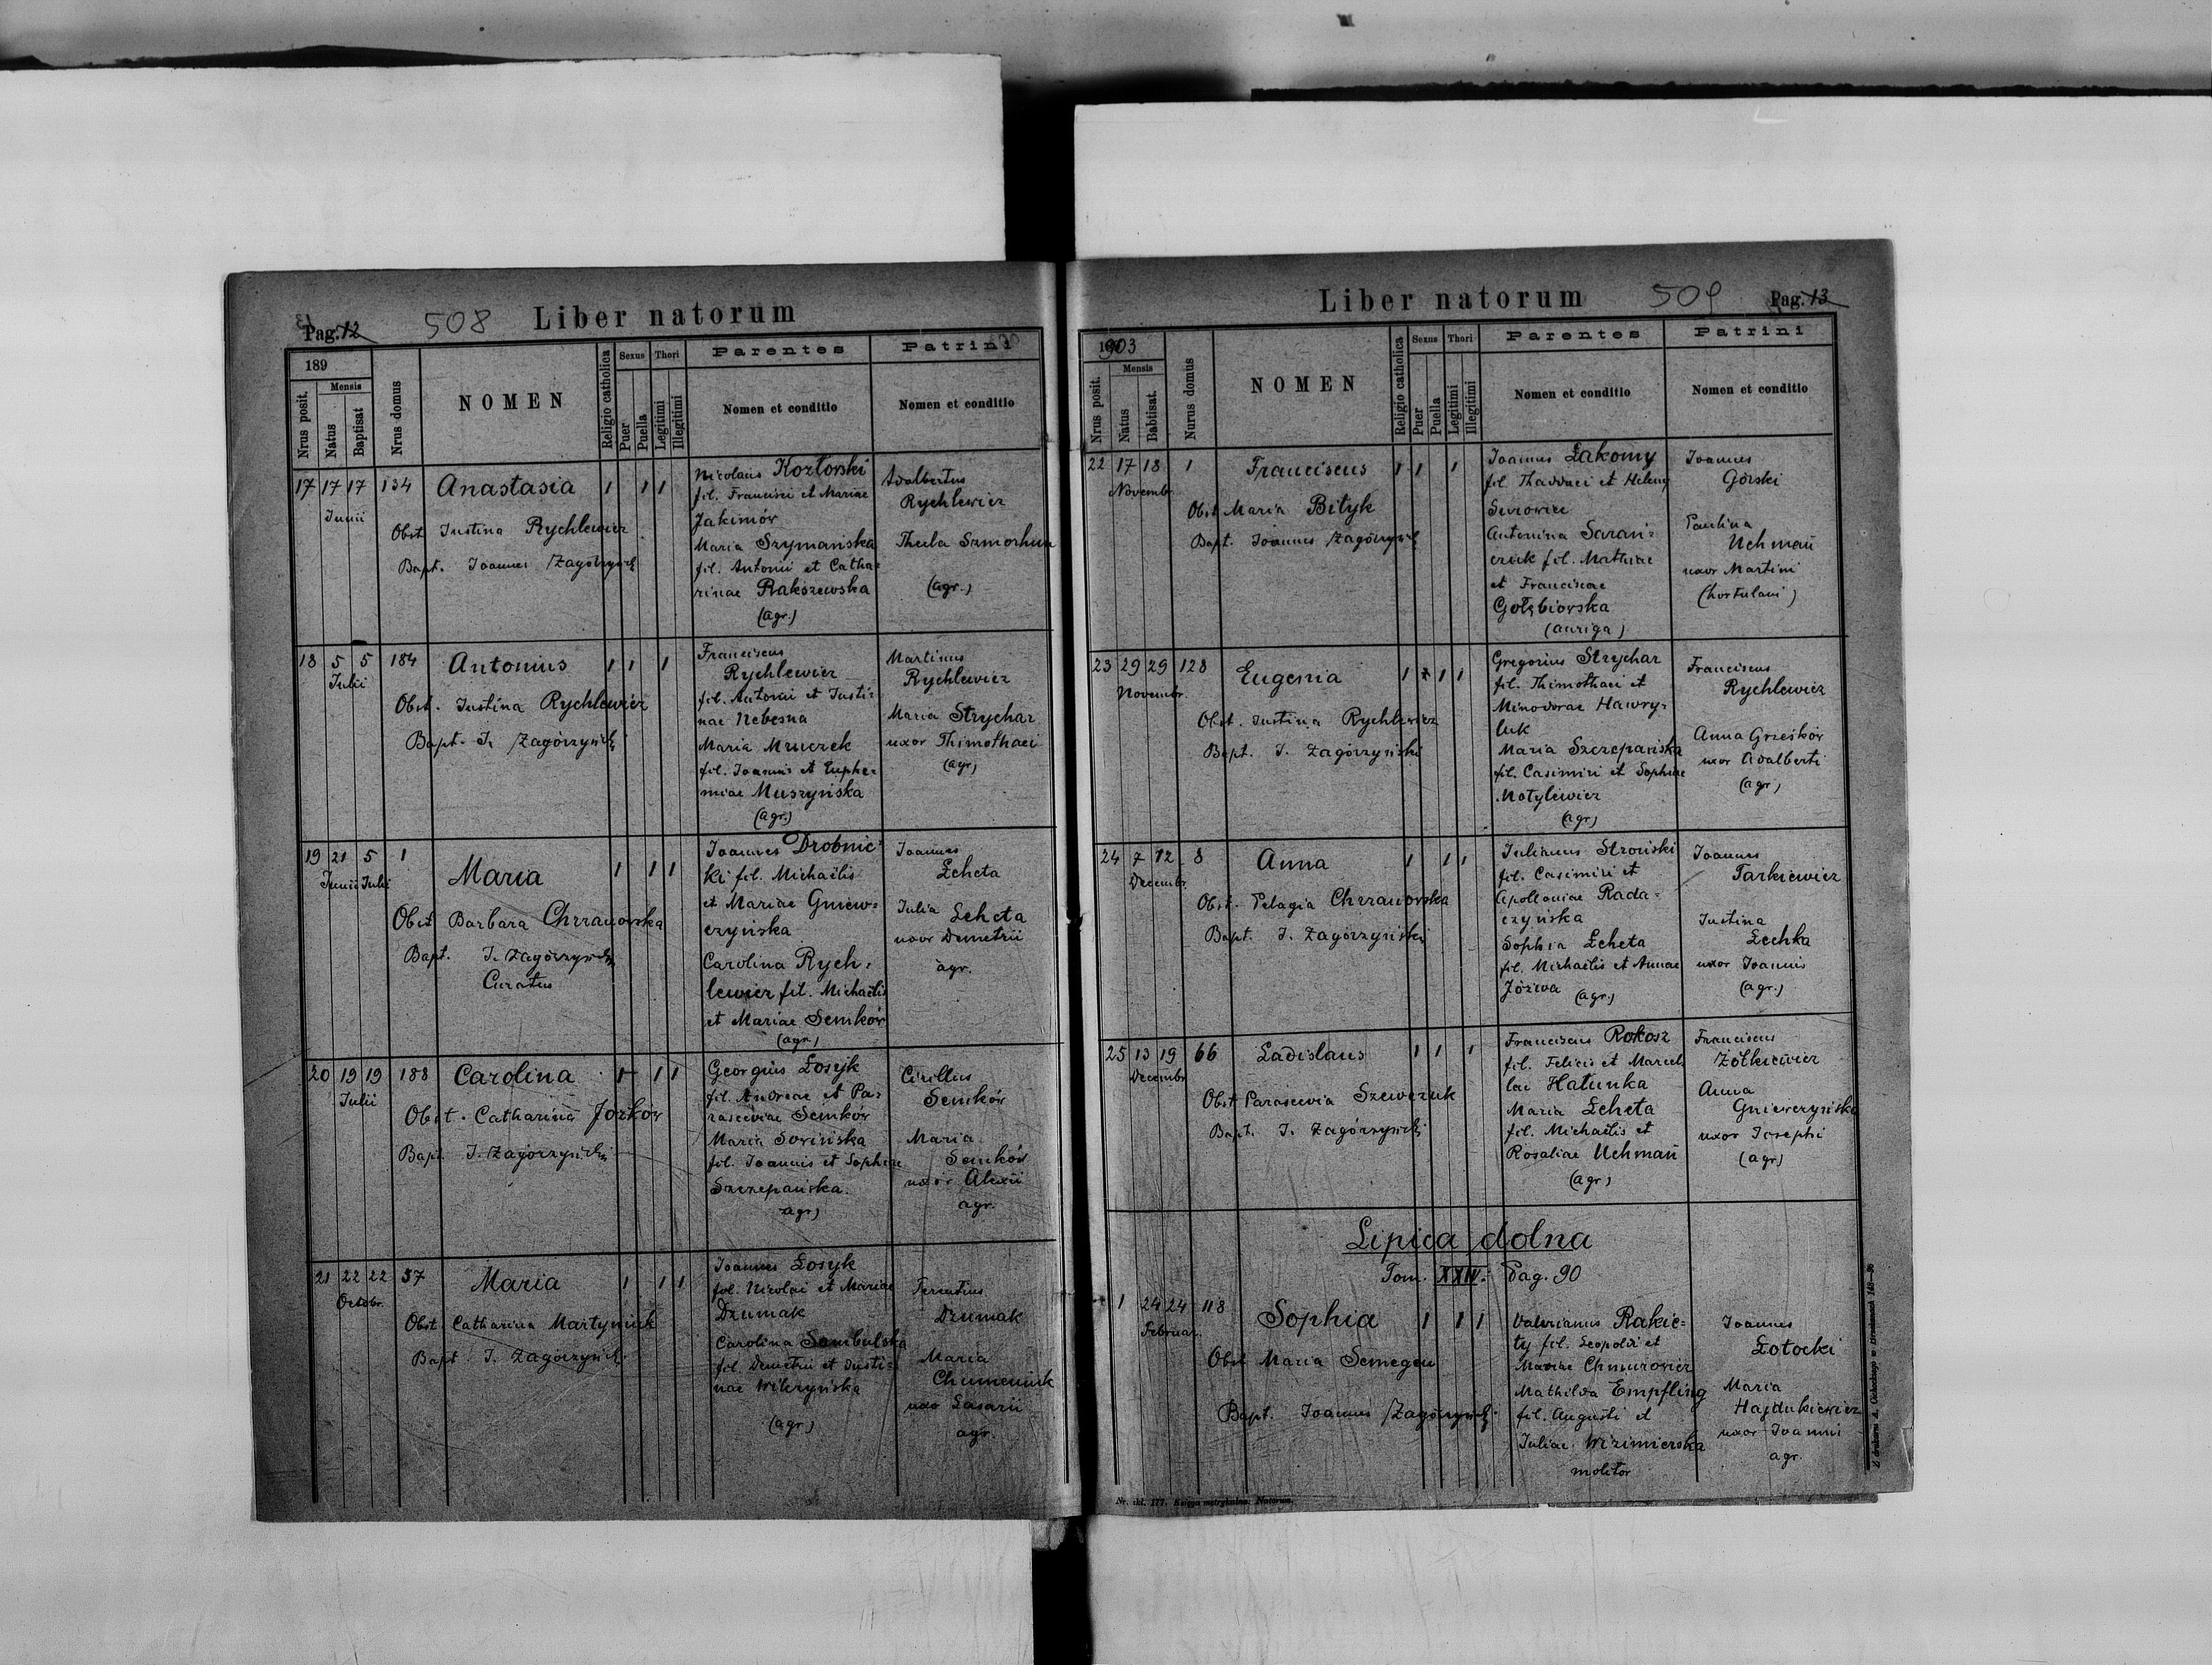 Pag. 12
508
Liber natorum
189
Nrus posit.
Mensis
Natus
Baptisat
Nrus domus
NOMEN
Religio catholica
Sexus
Puer
Puella
Thori
Legitimi
Illegitimi
Parentes
Nomen et conditio
Patrini
Nomen et conditio
17 17 17 134 Anastasia 1 1 1
Junii
Obst Iustina Rychlewicz
Bapt. Joannes Zagórzyński
Nicolaus Kozłovski
fil. Francisci et Mariae
Jakimów
Maria Szymańska
fil. Antonii et Catha-
rinae Rakoszewska
(agr.)
Adalbertus
Rychlewicz
Thecla Szmorhun
(agr.)
18 5 5 184 Antonius 1 1 1
Julii
Obst. Iustina Rychlewicz
Bapt. J. Zagórzyński
Franciscus
Rychlewicz
fil. Antonii et Justi-
nae Nebesna
Maria Mruczek
fil. Joannis et Euphe-
miae Muszyńska
(agr.)
Martinus
Rychlewicz
Maria Strychar
uxor Thimothaei
(agr)
19 21 5 1 Maria 1 1 1
Junii Julii
Obst Barbara Chrzanovska
Bapt. J. Zagórzyński
Curatus
Joannes Drobnic-
ki fil. Michaëlis
et Mariae Gniew-
czyńska
Carolina Rych-
lewicz fil. Michaëlis
et Mariae Semków
(agr.)
Joannes
Łeheta
Julia Leheta
uxor Demetrii
agr.
20 19 19 188 Carolina 1 1 1
Julii
Obst. Catharina Jozków
Bapt. J. Zagórzyński
Georgius Łosyk
fil. Andreae et Pa-
rasceviae Semków
Maria Sovińska
fil. Joannis et Sophiae
Szczepańska.
agr)
Cirillus
Semków
Maria
Semków
uxor Alexii
agr.
21 22 22 37 Maria 1 1 1
Octobr.
Obst Catharina Martyniuk
Bapt J. Zagórzyński
Joannes Łosyk
fil. Nicolai et Mariae
Dzumak
Carolina Sambulska
fil. Demetrii et Justi-
nae Wilczyńska
(agr)
Terentius
Dzumak
Maria
Chumeniuk
uxor Lasarii
agr.
Liber natorum
509
Pag. 13
1903
Nrus posit.
Mensis
Natus
Babtisat.
Nurus domus
NOMEN
Religio catholica
Sexus
Puer
Puella
Thori
Legitimi
Illegitimi
Parentes
Nomen et conditio
Patrini
Nomen et conditio
22 17 18 1 Franciscus 1 1 1
Novembr.
Obst Maria Bityk
Bapt. Joannes Zagórzyński
Joannes Łakomy
fil Thaddaei et Heleny
Surowiec
Antonina Saran-
czuk fil. Mathiae
et Franciscae
Gołębiovska
(auriga)
Joannes
Górski
Paulina
Uchmań
uxor Martini
(hortulani)
23 29 29 128 Eugenia 1 1 1
Novembr.
Obst. Iustina Rychlewicz
Bapt. J. Zagórzyński
Gregorius Strychar
fil. Thimothaei et
Minodorae Hawry-
luk
Maria Szczepańska
fil. Casimiri et Sophiae
Motylewicz
(agr)
Franciscus
Rychlewicz
Anna Grześków
uxor Adalberti
(agr)
24 7 12 8 Anna 1 1 1
Decembr.
Obst. Pelagia Chrzanovska
Bapt. J. Zagórzyński
Julianus Stroński
fil. Casimiri et
Apolloniae Rada-
czyńska
Sophia Łeheta
fil. Michaëlis et Annae
Józwa (agr.)
Joannes
Tarkiewicz
Justina
Lechka
uxor Joannis
(agr.)
25 13 19 66 Ladislaus 1 1 1
Decembr
Obst Parascevia Szewczuk
Bapt. J. Zagórzyński
Franciscus Rokosz
fil. Felicis et Marcel-
lae Hałunka
Maria Łeheta
fil. Michaëlis et
Rosaliae Uchmań
(agr)
Franciscus
Żółkiewicz
Anna
Gniewczyńska
uxor Josephi
(agr)
Lipica dolna
Tom. XXIV. Pag. 90
1 24 24 118 Sophia 1 1 1
Februar.
Obst Maria Semegen
Bapt. Joannes Zagórzyński
Valerianus Rakie-
ty fil. Leopoldi et
Mariae Chmurowicz
Mathilda Empfling
fil. Augusti et
Juliae Wizimierska
molitor
Joannes
Łotocki
Maria
Hajdukiewicz
uxor Joannis
agr.
Nr. skł. 177. Księga metrykalna. Natorum.